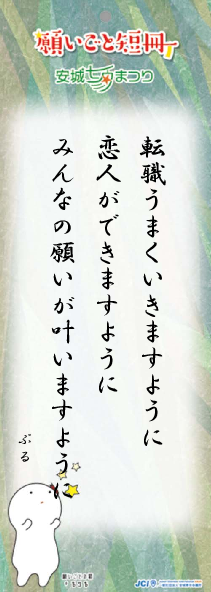 願いごと短冊
安城七夕まつり
転職うまくいきますように
恋人ができますように
みんなの願いが叶いますように
ぷる
JCI